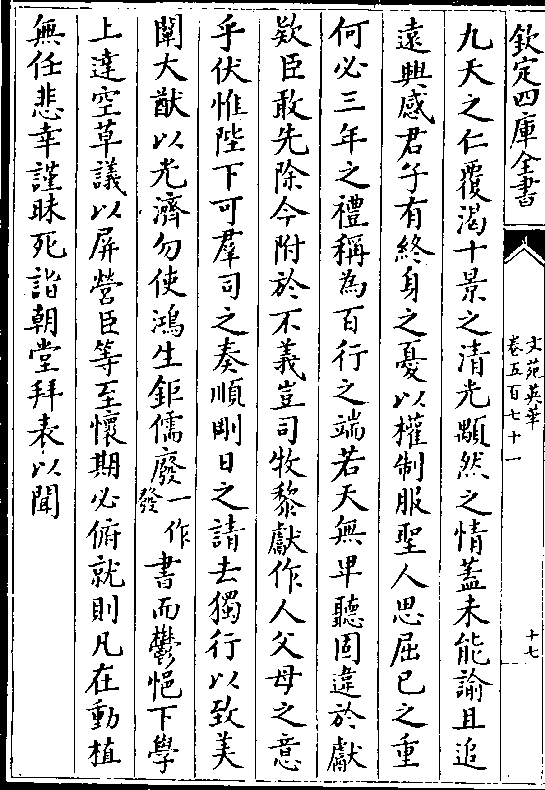 欽定四庫全書
文苑英華
卷五百七十一
十七
九天之仁覆渴十景之清光顒然之情蓋未能諭且追
遠興感君子有終身之憂以權制服聖人思屈已之重
何必三年之禮稱為百行之端若天無卑聽固違於獻
欵臣敢先除今附於不義豈司牧黎獻作人父母之意
乎伏惟陛下可羣司之奏順剛日之請去獨行以致美
闡大猷以光濟勿使鴻生鉅儒廢一作發書而鬱悒下學
上達空草議以屏營臣等至懷期必俯就則凡在動植
無任悲幸謹昧死詣朝堂拜表以聞